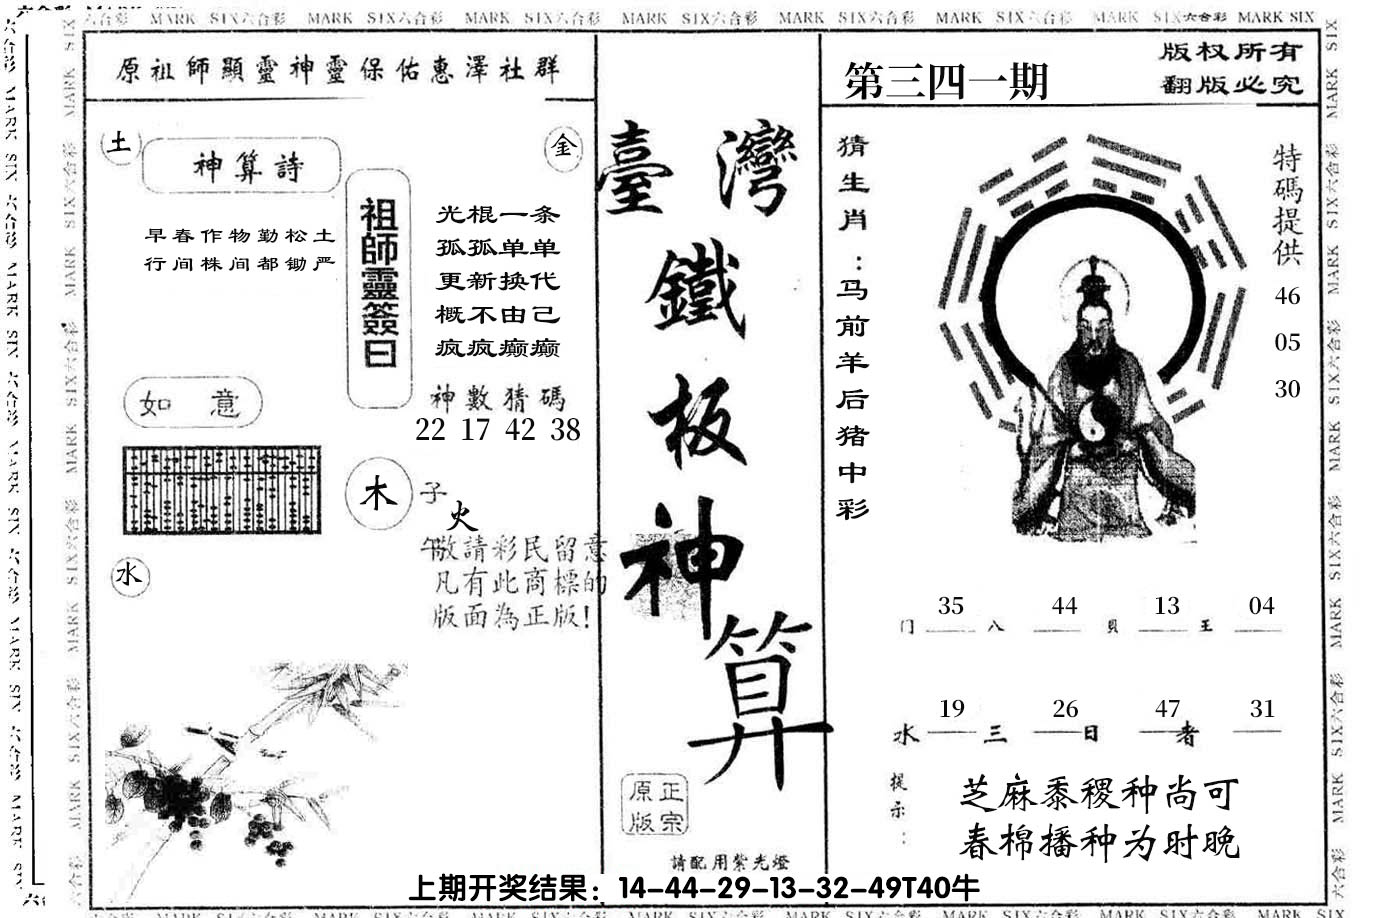 MARK SIX六合彩 MARK SIX六合彩 MARK SIX六合彩 MARK SIX六合彩 MARK SIX六合彩 MARK SIX六合彩 MARK SIX六合彩 MARK SIX
原祖師顯靈神靈保佑惠澤社群
土
神算詩
金
早春作物勤松土
行间株间都锄严
祖師靈簽曰
光棍一条
孤孤单单
更新换代
概不由己
疯疯癫癫
神數猜碼
22 17 42 38
如意
木
子
火
午
水
敬請彩民留意
凡有此商標的
版面為正版!
臺灣
鐵
板
神
算
正宗
原版
請配用紫光燈
第三四一期
版权所有
翻版必究
猜生肖:马前羊后猪中彩
特碼提供
46
05
30
35 44 13 04
门 八 貝 王
19 26 47 31
水 三 日 者
提示:
芝麻黍稷种尚可
春棉播种为时晚
上期开奖结果：14-44-29-13-32-49T40牛